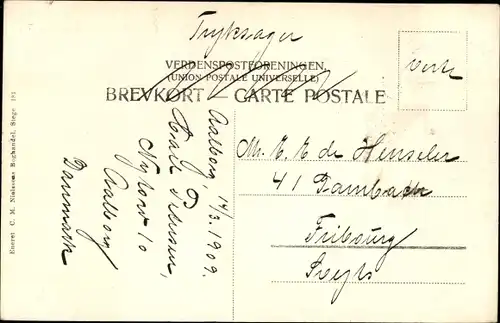 Tryksager
VERDENSPOSTFORENINGEN.
(UNION POSTALE UNIVERSELLE)
BREVKORT – CARTE POSTALE
Eneret C. M. Nielsens Boghandel, Stege.
Aalborg, 14/3 1909.
Carl Petersen,
Nybo 10
Aalborg
Danmark
verte
M. E. E de Henseler
41 Dambach
Fribourg